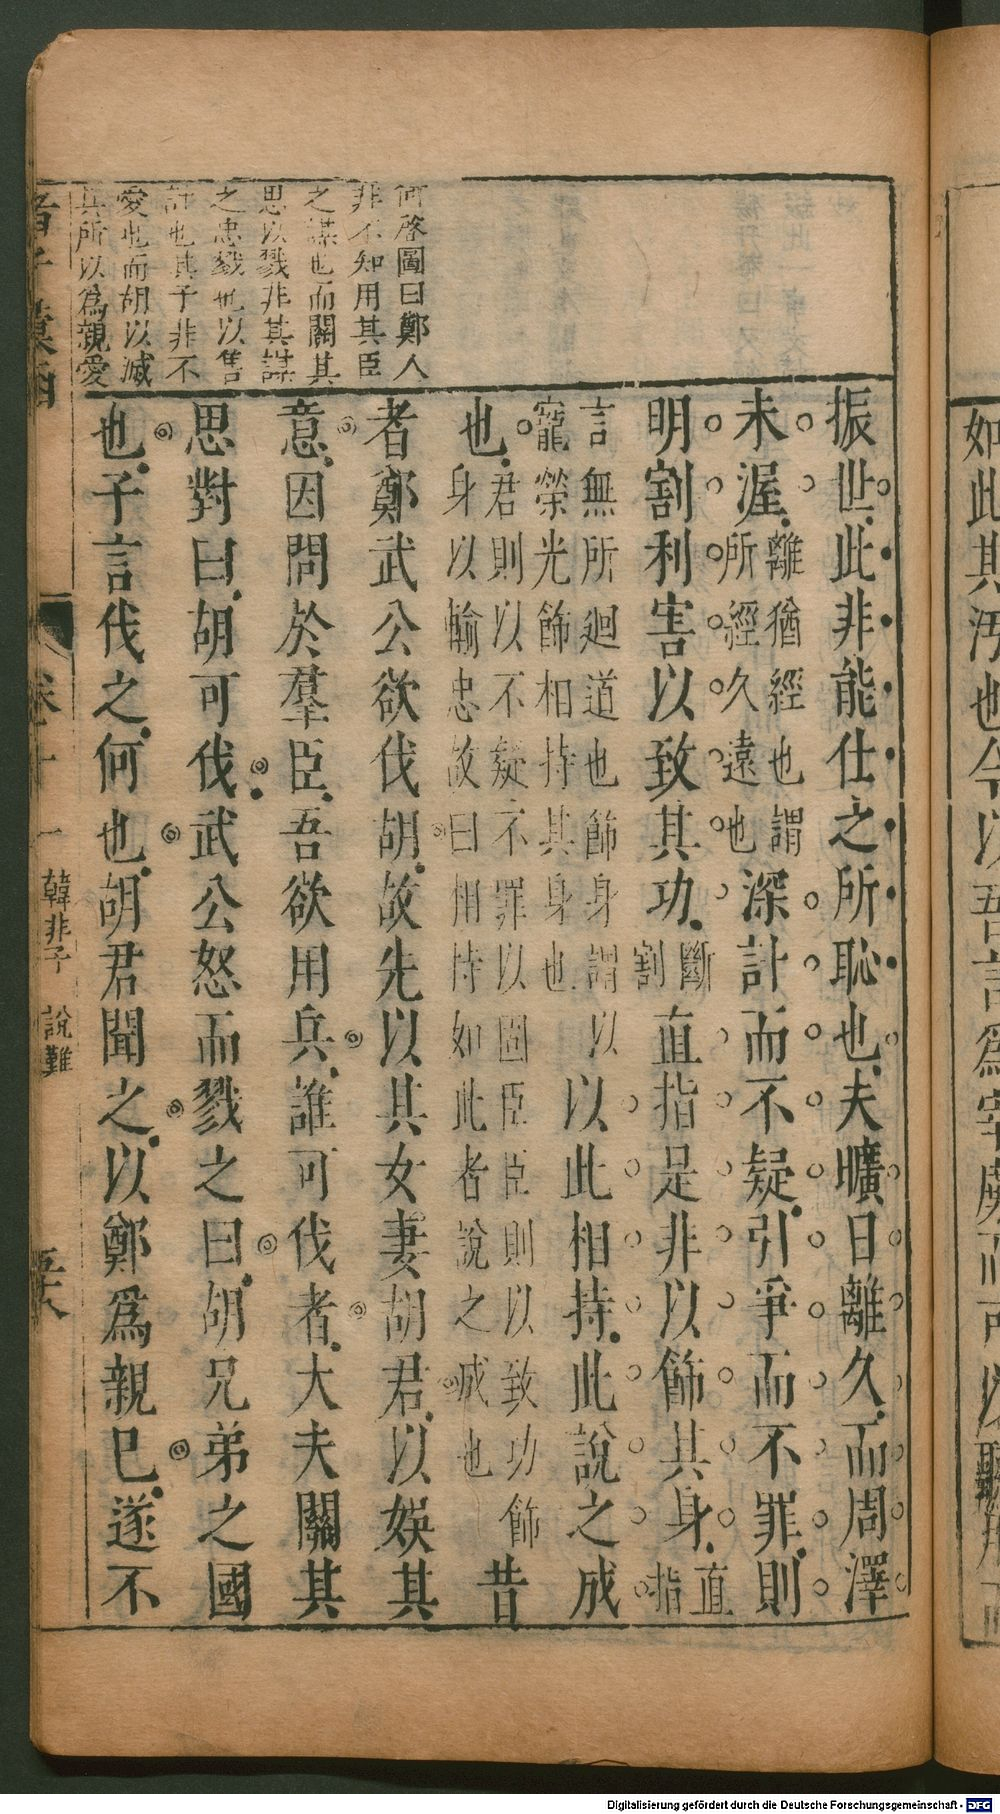 如此其汚也今以吾言爲宰虜而可以聽用而
何啓圖曰鄭人
非不知用其臣
之謀也而關其
思以戮非其謀
之忠戮也以售
計也其子非不
愛也而胡以滅
其所以爲親愛
振世此非能仕之所恥也夫曠日離久而周澤
未渥離猶經也謂所經久遠也深計而不疑引爭而不罪則
明割利害以致其功斷割直指是非以飾其身直指
言無所廻道也飾身謂以寵榮光飾相持其身也以此相持此說之成
也君則以不疑不罪以固臣臣則以致功飾身以輸忠故曰相持如此者說之成也昔
者鄭武公欲伐胡故先以其女妻胡君以娛其
意因問於羣臣吾欲用兵誰可伐者大夫關其
思對曰胡可伐武公怒而戮之曰胡兄弟之國
也子言伐之何也胡君聞之以鄭爲親已遂不
諸子彙函 卷十一 韓非子 說難
Digitalisierung gefördert durch die Deutsche Forschungsgemeinschaft - DFG